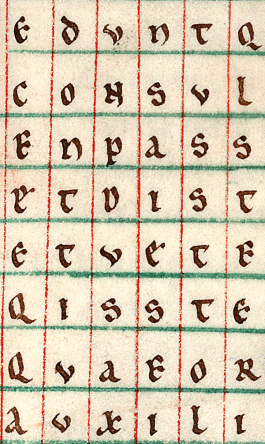 E D V N T Q
C O N S V L
E N P A S S
E T D I S T
E T V E T E
Q I S S T E
Q V A E O R
A V X I L I